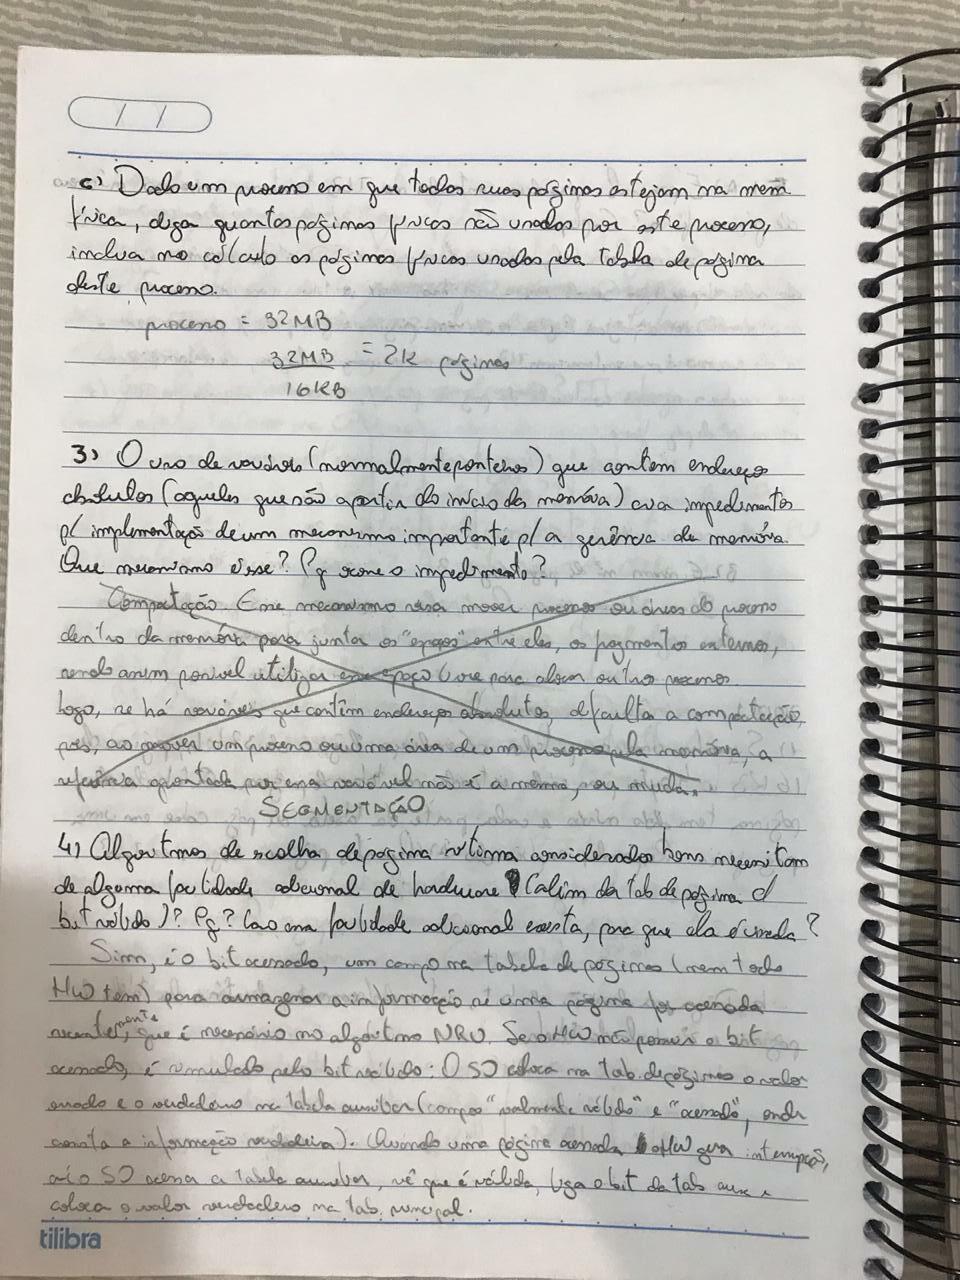 c) Dado um processo em que todas suas páginas estejam na mem
física, diga quantas páginas físicas são usadas por este processo,
inclua no cálculo as páginas físicas usadas pela tabela de página
deste processo.
processo = 32MB
32MB = 2K páginas
16KB
3) O uso de variáveis (normalmente ponteiros) que contem endereços
absolutos (aqueles que são a partir do início da memória) cria impedimentos
p/ implementação de um mecanismo importante p/ a gerência de memória.
Que mecanismo é esse? Pq ocorre o impedimento?
Compactação. Esse mecanismo visa mover processos ou áreas do processo
dentro da memória para juntar os "espaços" entre eles, os fragmentos externos,
sendo assim possível utilizar esse espaço livre para alocar outros processos
Logo, se há variáveis que contêm endereços absolutos, dificulta a compactação,
pois, ao mover um processo ou uma área de um processo pela memória, a
referência apontada por essa variável não é a mesma, ou muda.
SEGMENTAÇÃO
4) Algoritmos de escolha de página vítima considerados bons necessitam
de alguma facilidade adicional de hardware (além da tab de página c/
bit válido)? Pq? Caso essa facilidade adicional exista, para que ela é usada?
Sim, é o bit acessado, um campo na tabela de páginas (nem todo
HW tem) para armazenar a informação se uma página foi acessada
recentemente, que é necessário no algoritmo NRU. Se o HW não possuir o bit
acessado, é simulado pelo bit válido: O SO coloca na tab. de páginas o valor
errado e o verdadeiro na tabela auxiliar (campos "realmente válido" e "acessado", onde
consta a informação verdadeira). Quando uma página acessada o HW gera interrupção,
aí o SO acessa a tabela auxiliar, vê que é válida, liga o bit da tab aux e
coloca o valor verdadeiro na tab. principal.
tilibra